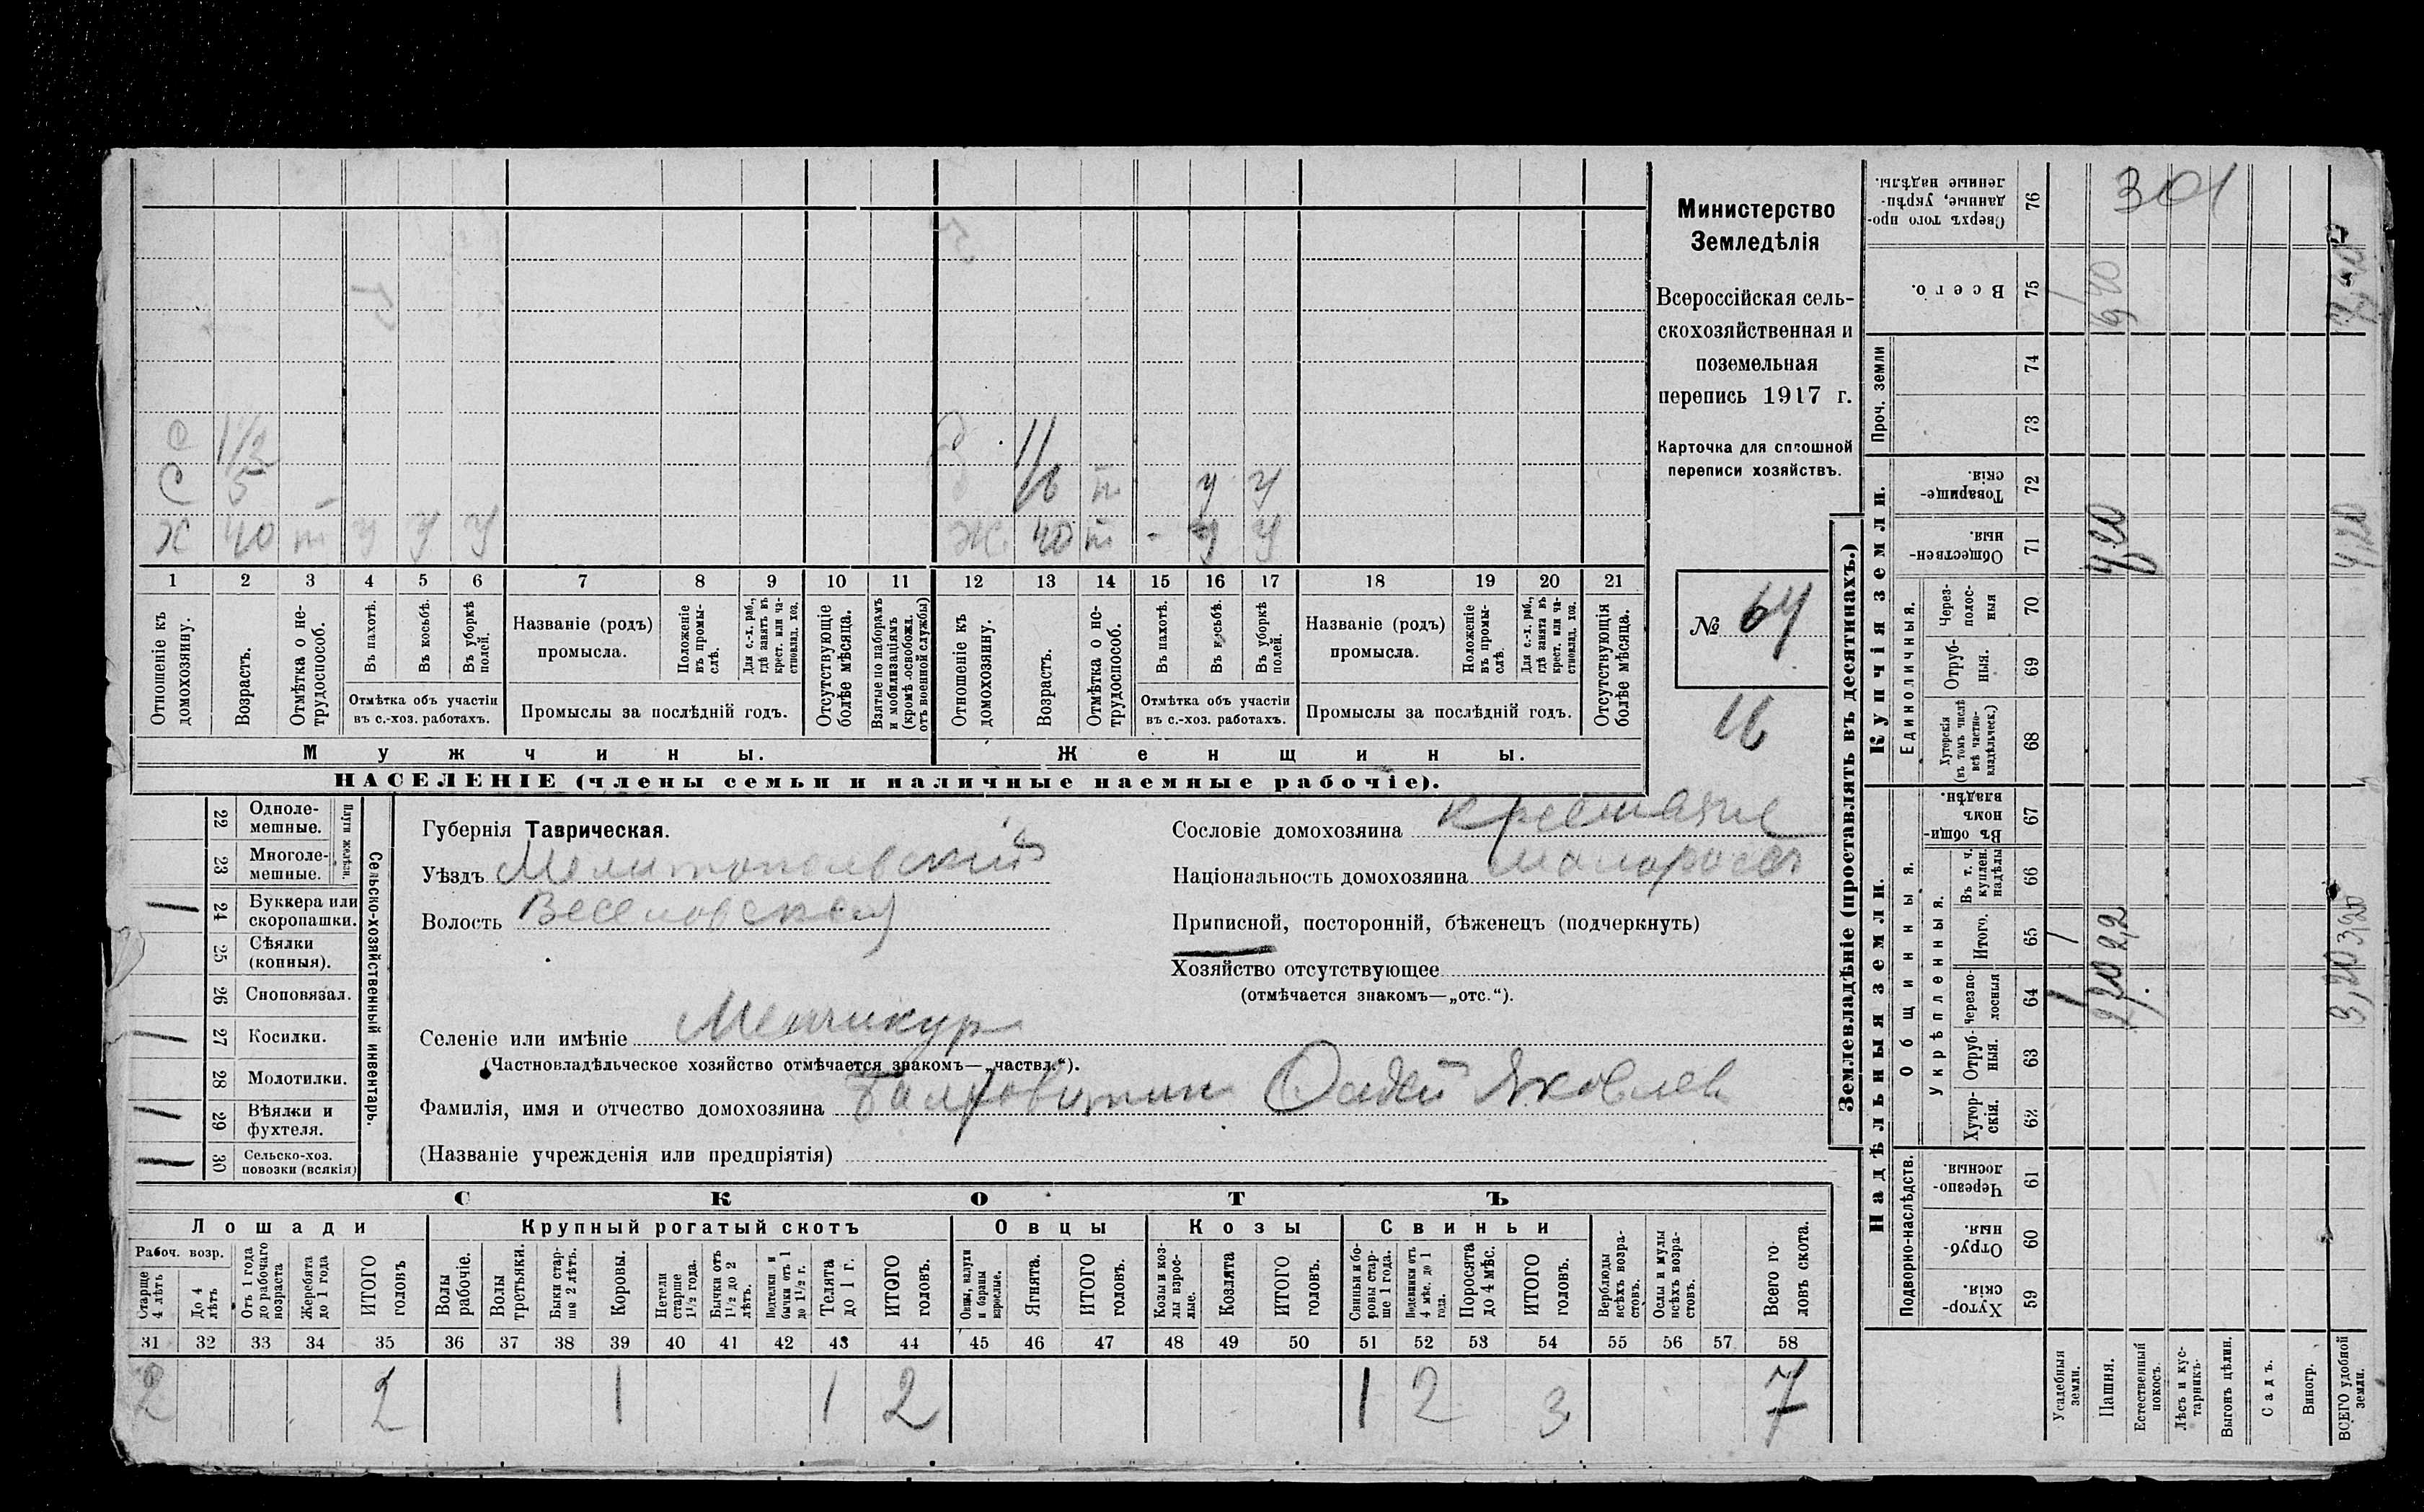 Министерство
Земледѣлія
Всероссійская сель-
скохозяйственная и
поземельная
перепись 1917 г.
Карточка для сплошной
переписи хозяйствъ.
№ 64
16
с 1 1/2
С 5
Х 40 т у у у
д 11
д 16 т у у
Ж 40 т - у у
1 2 3 4 5 6 7 8 9 10 11 12 13 14 15 16 17 18 19 20 21
Отношеніе къ домохозяину.
Возрастъ.
Отмѣтка о не-трудоспособ.
Въ пахотѣ.
Въ косьбѣ.
Въ уборкѣ полей.
Отмѣтка объ участіи въ с.-хоз. работахъ.
Названіе (родъ) промысла.
Положеніе въ промы-слѣ.
Для с.-х. раб., гдѣ занятъ въ крест. или ча-стновлад. хоз.
Промыслы за послѣдній годъ.
Отсутствующіе болѣе мѣсяца.
Взятые по наборамъ и мобилизаціямъ (кромѣ освобожд. отъ военной службы)
Отношеніе къ домохозяину.
Возрастъ.
Отмѣтка о не-трудоспособ.
Въ пахотѣ.
Въ косьбѣ.
Въ уборкѣ полей.
Отмѣтка объ участіи въ с.-хоз. работахъ.
Названіе (родъ) промысла.
Положеніе въ промы-слѣ.
Для с.-х. раб., гдѣ занята въ крест. или ча-стновлад. хоз.
Промыслы за послѣдній годъ.
Отсутствующія болѣе мѣсяца.
Мужчины.
Женщины.
НАСЕЛЕНІЕ (члены семьи и наличные наемные рабочіе).
Сельско-хозяйственный инвентарь.
Плуги желѣзн.
22 Одноле-мешные.
23 Многоле-мешные.
24 Буккера или скоропашки.
25 Сѣялки (конныя).
26 Сноповязал.
27 Косилки.
28 Молотилки.
29 Вѣялки и фухтеля.
30 Сельско-хоз. повозки (всякія)
Губернія Таврическая.
Уѣздъ Мелитопольскій
Волость Веселовская
Сословіе домохозяина крестьяне
Національность домохозяина малороссъ
Приписной, посторонній, бѣженецъ (подчеркнуть)
Хозяйство отсутствующее
(отмѣчается знакомъ—„отс.“).
Селеніе или имѣніе Менчикур
(Частновладѣльческое хозяйство отмѣчается знакомъ—„частвл.“).
Фамилія, имя и отчество домохозяина Яковлев
(Названіе учрежденія или предпріятія)
СКОТЪ
Лошади
Крупный рогатый скотъ
Овцы
Козы
Свиньи
Рабоч. возр.
Старше 4 лѣтъ
До 4 лѣтъ
Отъ 1 года до рабочаго возраста
Жеребята до 1 года
ИТОГО головъ
Волы рабочіе.
Волы третьяки.
Быки стар-ше 2 лѣтъ.
Коровы.
Нетели старше 1½ года.
Бычки отъ 1½ до 2 лѣтъ.
Подтелки и бычки отъ 1 до 1½ г.
Телята до 1 г.
ИТОГО головъ.
Овцы, валухи и бараны взрослые.
Ягнята.
ИТОГО головъ.
Козы и коз-лы взрос-лые.
Козлята
ИТОГО головъ.
Свиньи и бо-ровы стар-ше 1 года.
Подсвинки отъ 4 мѣс. до 1 года.
Поросята до 4 мѣс.
ИТОГО головъ.
Верблюды всѣхъ возра-стовъ.
Ослы и мулы всѣхъ возра-стовъ.
Всего го-ловъ скота.
31 32 33 34 35 36 37 38 39 40 41 42 43 44 45 46 47 48 49 50 51 52 53 54 55 56 57 58
2 2 1 1 2 1 2 3 7
Землевладѣніе (проставлять въ десятинахъ.)
Надѣльныя земли.
Купчія земли.
Проч. земли
Подворно-наслѣдств.
Общинныя.
Укрѣпленныя.
Единоличныя.
Хутор-скія. 59
Отруб-ныя. 60
Черезпо-лосныя. 61
Хутор-скія. 62
Отруб-ныя. 63
Черезпо-лосныя 64
Итого. 65
Въ т. ч. куплен. надѣлы 66
Въ общин-номъ владѣн. 67
Хуторскія (въ томъ числѣ всѣ частно-владѣльческ.) 68
Отруб-ныя. 69
Через-полос-ныя 70
Обществен-ныя. 71
Товарище-скія. 72
73
74
Всего. 75
Сверхъ того про-данные, укрѣп-ленные надѣлы. 76
Усадебныя земли.
Пашня.
Естественный покосъ.
Лѣсъ и кус-тарникъ.
Выгонъ цѣлин.
Садъ.
Виногр.
ВСЕГО удобной земли.
301
4,20
4,20